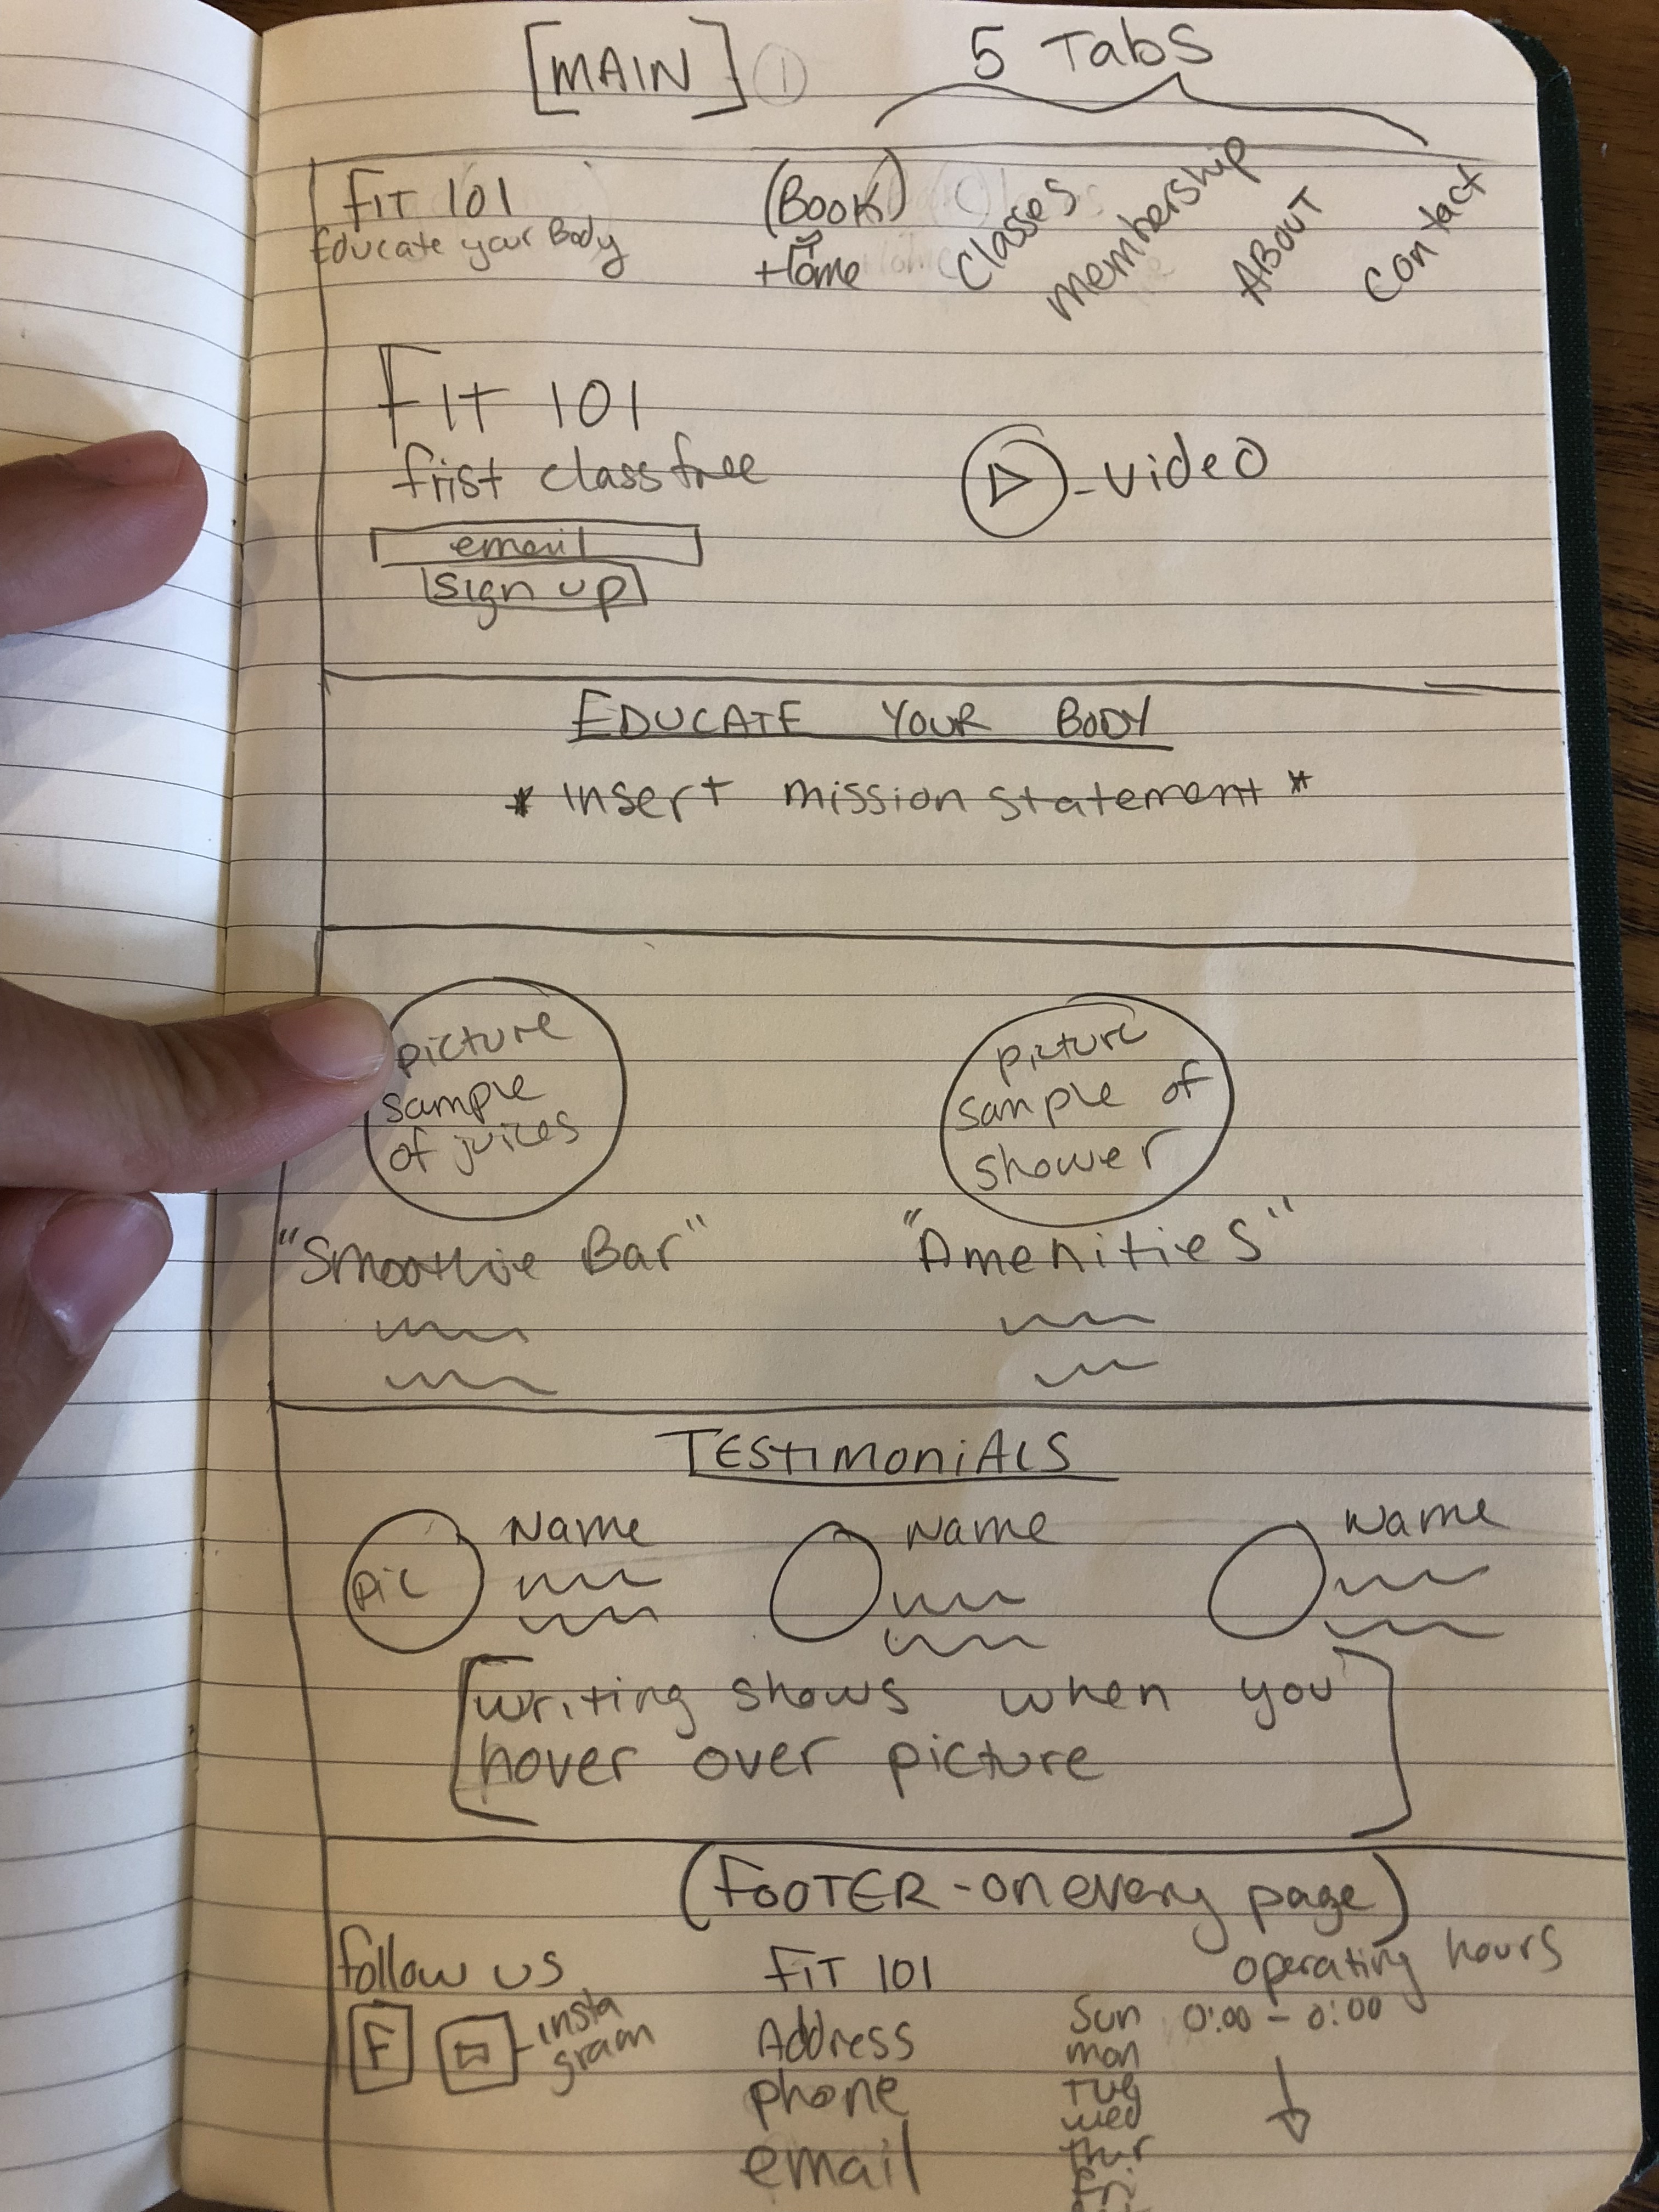 [MAIN] 1
5 Tabs
FIT 101
Educate your Body
(Book)
Home
Classes
membership
ABOUT
Contact
FIT 101
frist class free
email
sign up
video
EDUCATE YOUR BODY
* Insert mission statement *
picture
sample
of juices
picture
sample of
shower
"Smoothie Bar"
"Amenities"
TESTIMONIALS
pic
Name
Name
Name
[writing shows when you
hover over picture]
(FOOTER - on every page)
follow us
F
insta
gram
FIT 101
Address
phone
email
operating hours
Sun 0:00 - 0:00
mon
Tue
wed
thur
fri